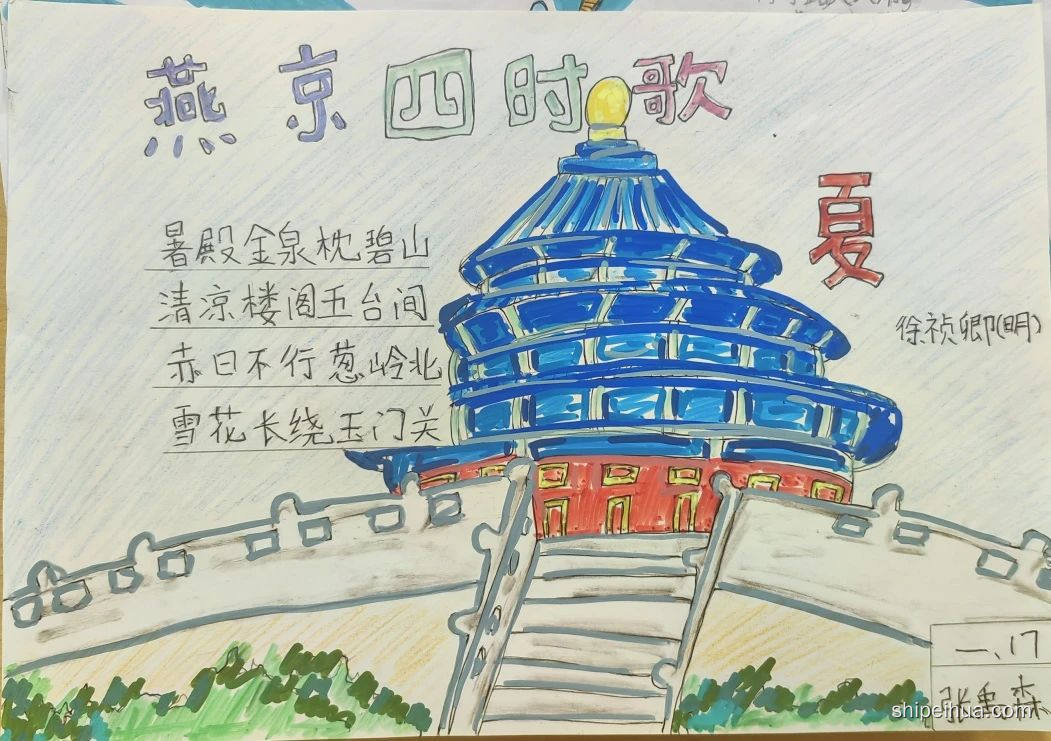 燕京四时歌
夏
徐祯卿(明)
暑殿金泉枕碧山
清凉楼阁五台间
赤日不行葱岭北
雪花长绕玉门关
一、17
张 森
shipeihua.com